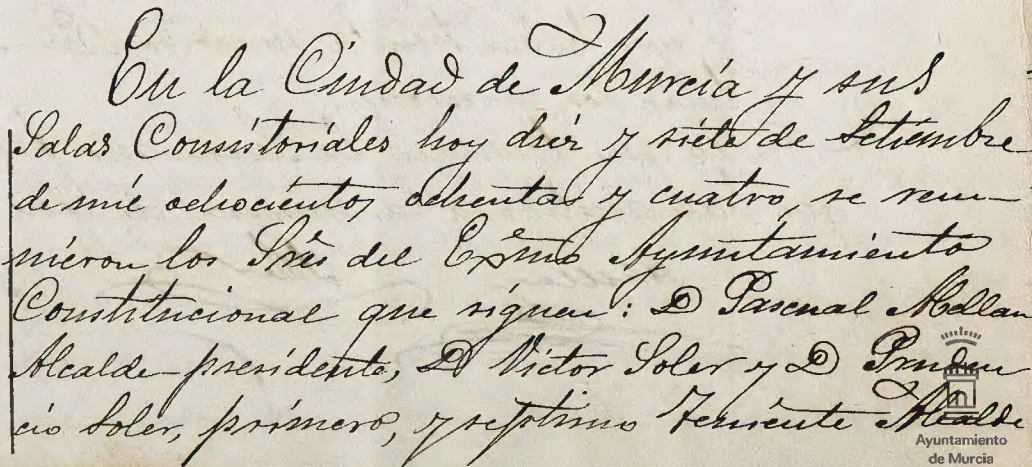 En la Ciudad de Murcia y sus
Salas Consistoriales hoy diez y siete de Setiembre
de mil ochocientos ochenta y cuatro, se reu-
nieron los Sres del Exmo Ayuntamiento
Constitucional que siguen: D Pascual Abellan
Alcalde-presidente, D Victor Soler y D Pruden
cio Soler, primero, y septimo Teniente Alcalde
Ayuntamiento
de Murcia